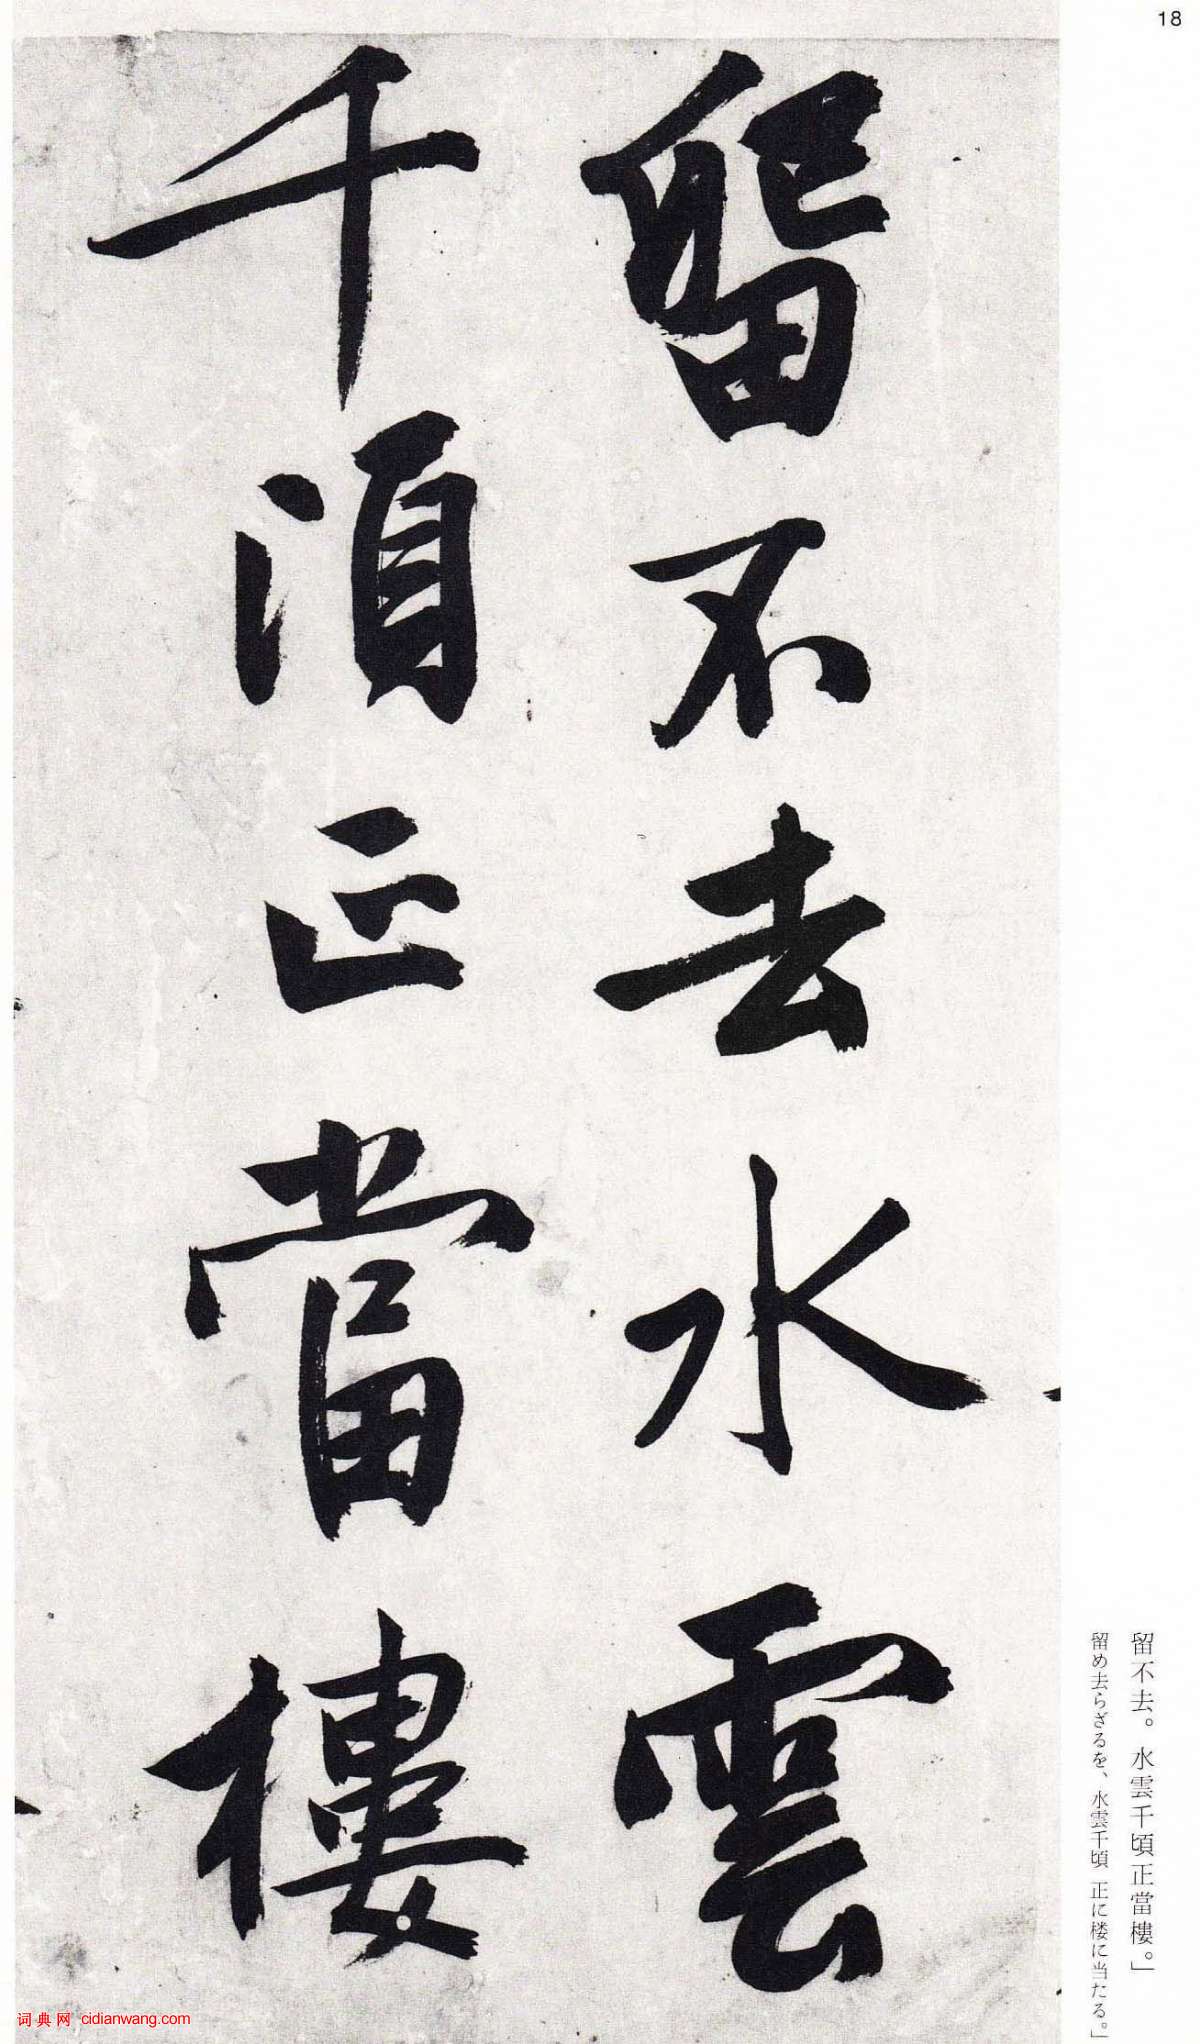 18
留不去水雲
千頃正當樓
留不去。水雲千頃正當樓。」
留め去らざるを、水雲千頃 正に楼に当たる。」
词典网 cidianwang.com